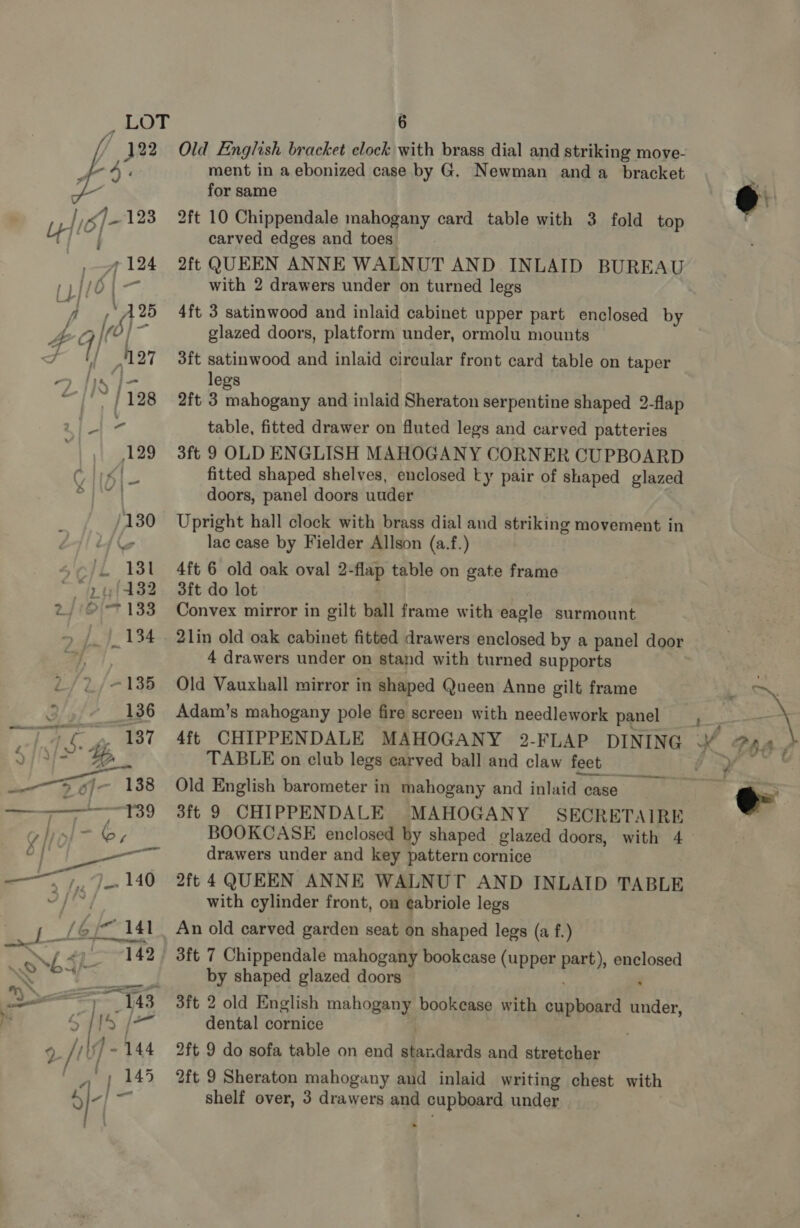 LOT 6
122 Old English bracket clock with brass dial and striking move-
ment in a ebonized case by G. Newman and a bracket
for same
123 2ft 10 Chippendale mahogany card table with 3 fold top
carved edges and toes
124 2ft QUEEN ANNE WALNUT AND INLAID BUREAU
with 2 drawers under on turned legs
125 4ft 3 satinwood and inlaid cabinet upper part enclosed by
glazed doors, platform under, ormolu mounts
127 3ft satinwood and inlaid circular front card table on taper
legs
128 2ft 3 mahogany and inlaid Sheraton serpentine shaped 2-flap
table, fitted drawer on fluted legs and carved patteries
129 3ft 9 OLD ENGLISH MAHOGANY CORNER CUPBOARD
fitted shaped shelves, enclosed by pair of shaped glazed
doors, panel doors uuder
130 Upright hall clock with brass dial and striking movement in
lac case by Fielder Allson (a.f.)
131 4ft 6 old oak oval 2-flap table on gate frame
132 3ft do lot
133 Convex mirror in gilt ball frame with eagle surmount
134 21in old oak cabinet fitted drawers enclosed by a panel door
4 drawers under on stand with turned supports
135 Old Vauxhall mirror in shaped Queen Anne gilt frame
136 Adam's mahogany pole fire screen with needlework panel
137 4ft CHIPPENDALE MAHOGANY 2-FLAP DINING
TABLE on club legs carved ball and claw feet
138 Old English barometer in mahogany and inlaid case
139 3ft 9 CHIPPENDALE MAHOGANY SECRETAIRE
BOOKCASE enclosed by shaped glazed doors, with 4
drawers under and key pattern cornice
140 2ft 4 QUEEN ANNE WALNUT AND INLAID TABLE
with cylinder front, on cabriole legs
141 An old carved garden seat on shaped legs (a f.)
142 3ft 7 Chippendale mahogany bookcase (upper part), enclosed
by shaped glazed doors
143 3ft 2 old English mahogany bookcase with cupboard under,
dental cornice
144 2ft 9 do sofa table on end standards and stretcher
145 2ft 9 Sheraton mahogany and inlaid writing chest with
shelf over, 3 drawers and cupboard under